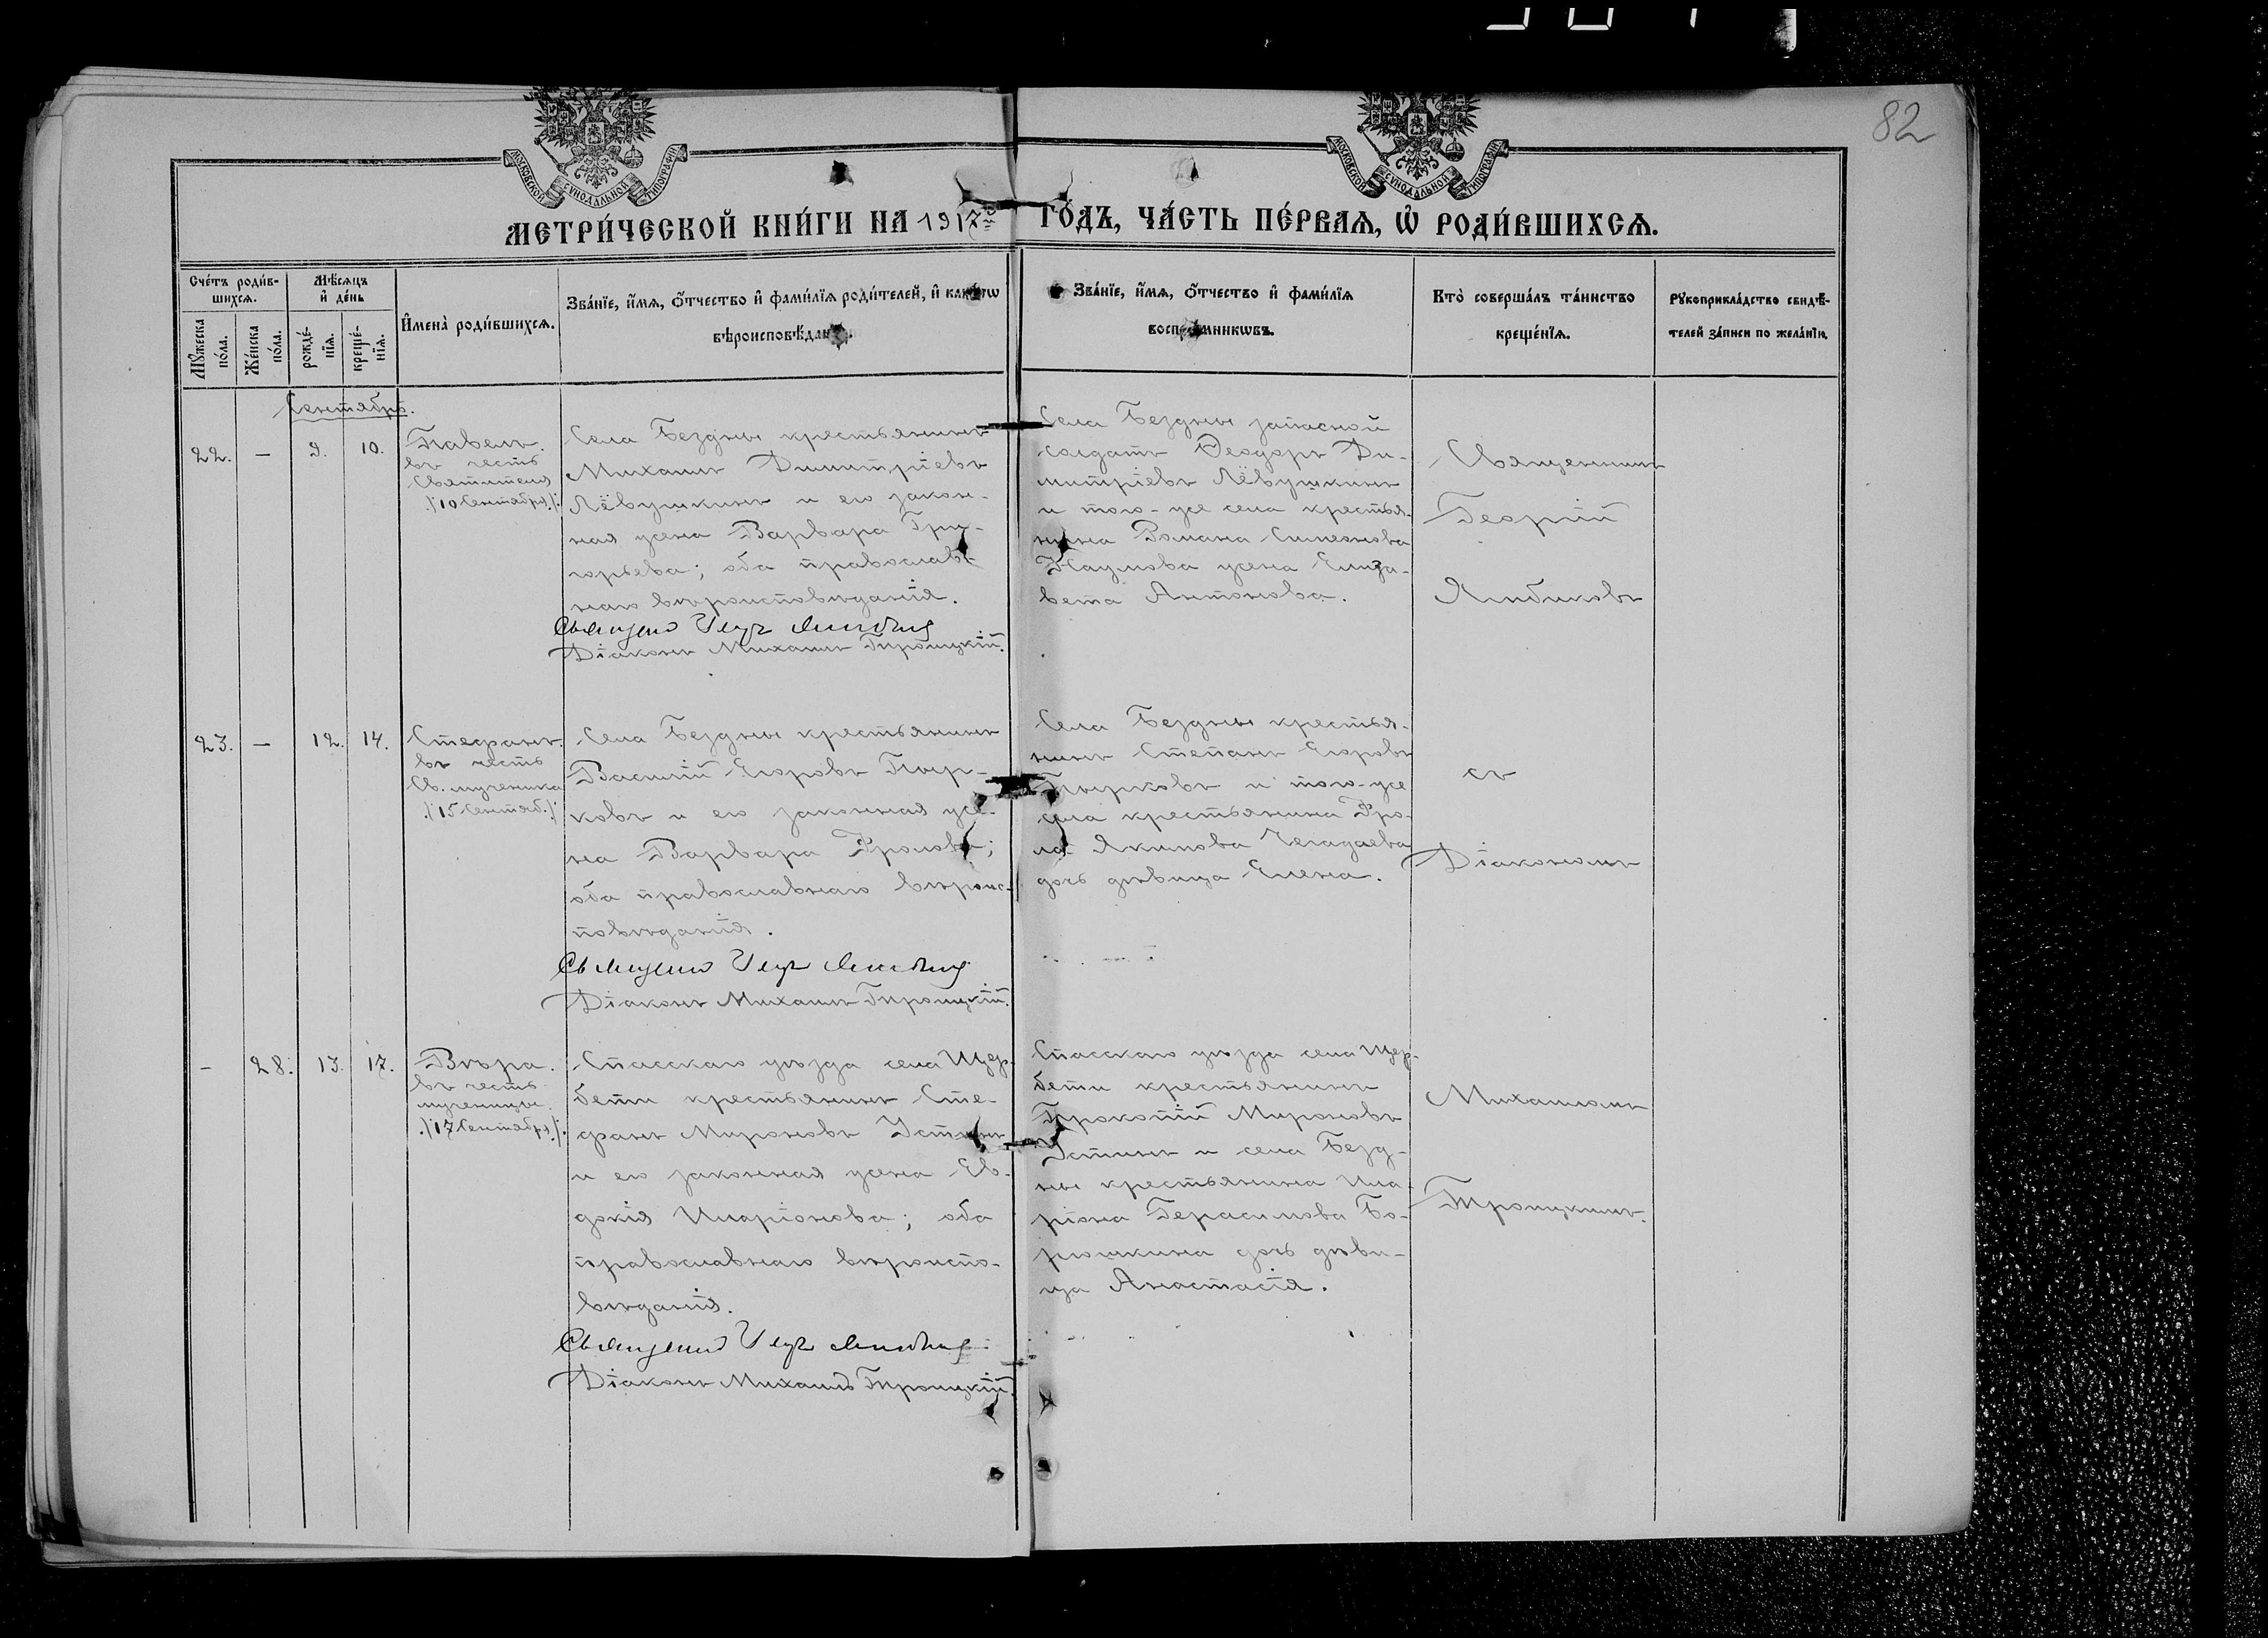 82
МОСКОВСКОЙ СУНОДАЛЬНОЙ ТИПОГРАФІИ
МОСКОВСКОЙ СУНОДАЛЬНОЙ ТИПОГРАФІИ
МЕТРИ́ЧЕСКОЙ КНИ́ГИ НА 1917й ГО́ДЪ, ЧА́СТЬ ПЕ́РВАѦ, Ѡ҆ РОДИ́ВШИХСѦ.
Сче́тъ роди́в-
шихсѧ.
Мꙋ́жеска
по́ла.
Же́нска
по́ла.
Мѣ́сѧцъ
и҆ де́нь
рожде́-
нїѧ.
креще́-
нїѧ.
И҆мена̀ роди́вшихсѧ.
Зва́нїе, и҆́мѧ, о҆́тчество и҆ фами́лїѧ роди́телей, и҆ како́гѡ
вѣроисповѣ́данїѧ.
Зва́нїе, и҆́мѧ, о҆́тчество и҆ фами́лїѧ
воспрїе́мникѡвъ.
Кто̀ соверша́лъ та́инство
креще́нїѧ.
Рꙋкоприкла́дство свидѣ́-
телей за́писи по жела́нїю.
Сентябрь.
22.
—
9.
10.
Павелъ.
въ честь
Святителя
/10 Сентября/.
Села Бездны крестьянинъ
Михаилъ Димитріевъ
Лёвушкинъ и его закон-
ная жена Варвара Гри-
горьева; оба православ-
наго вѣроисповѣданія.
Діаконъ Михаилъ Троицкій.
Села Бездны запасной
солдатъ Ѳеодоръ Ди-
митріевъ Лёвушкинъ
и того-же села крестья-
нина Романа Симеонова
Наумова жена Елиза-
вета Антонова.
Священникъ
Георгій
Ямбиковъ
23.
—
12.
14.
Стефанъ.
въ честь
Св. мученика
/15 Сентяб./
Села Бездны крестьянинъ
Василій Егоровъ Пыр-
ковъ и его законная же-
на Варвара Фролова;
оба православнаго вѣроис-
повѣданія.
Діаконъ Михаилъ Троицкій.
Села Бездны крестья-
нинъ Степанъ Егоровъ
Пырковъ и того-же
села крестьянина Фро-
ла Якимова Чегадаева
дочь дѣвица Елена.
съ
Діакономъ
-
28.
13.
17.
Вѣра.
въ честь
мученицы.
/17 Сентября/.
Спасскаго уѣзда села Щер-
бети крестьянинъ Сте-
фанъ Мироновъ Устинъ
и его законная жена Ев-
докія Иларіонова; оба
православнаго вѣроиспо-
вѣданія.
Діаконъ Михаилъ Троицкій.
Спасскаго уѣзда села Щер-
бети крестьянинъ
Прокопій Мироновъ
Устинъ и села Безд-
ны крестьянина Ила-
ріона Герасимова Бо-
рюшкина дочь дѣви-
ца Анастасія.
Михаиломъ
Троицкимъ.